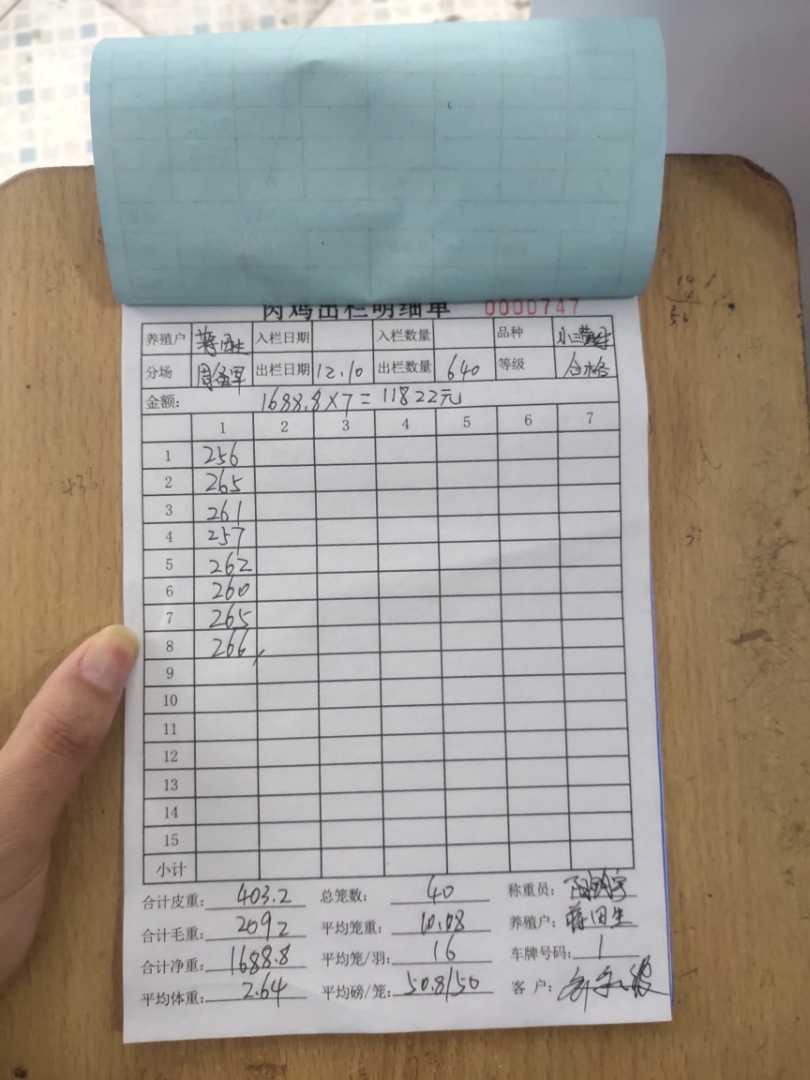 肉鸡出栏明细单 0000747
养殖户 蒋国生 入栏日期 入栏数量 品种
分场 出栏日期 12.10 出栏数量 640 等级 合格
金额: 1688.8×7=11822元
1 2 3 4 5 6 7
1 256
2 265
3 261
4 257
5 262
6 260
7 265
8 266
9
10
11
12
13
14
15
小计
合计皮重: 403.2 总笼数: 40 称重员:
合计毛重: 2092 平均笼重: 10.08 养殖户: 蒋国生
合计净重: 1688.8 平均笼/羽: 16 车牌号码: 1
平均体重: 2.64 平均磅/笼: 50.8/50 客 户: